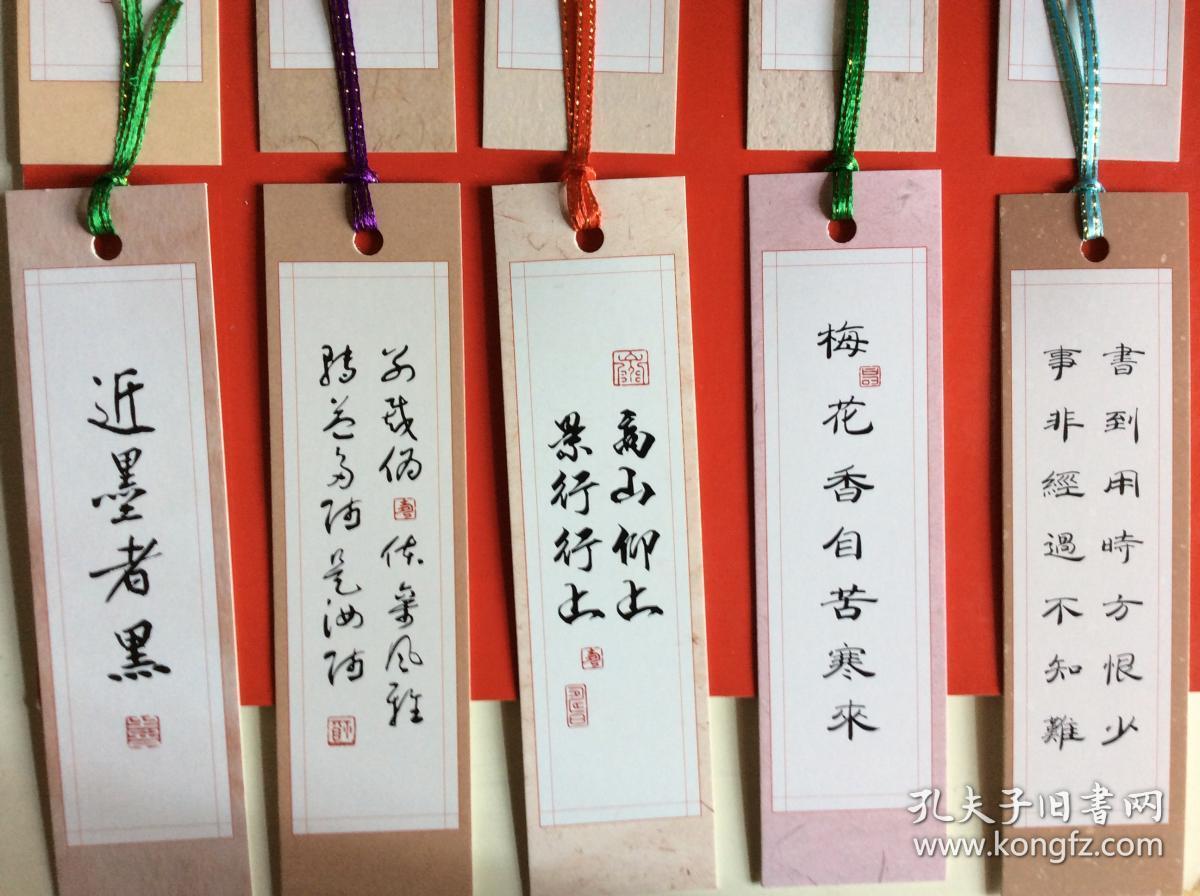 近墨者黑
别裁偽体親風雅
轉益多師是汝師
高山仰止
景行行止
梅花香自苦寒來
書到用時方恨少
事非經過不知難
孔夫子旧书网
www.kongfz.com